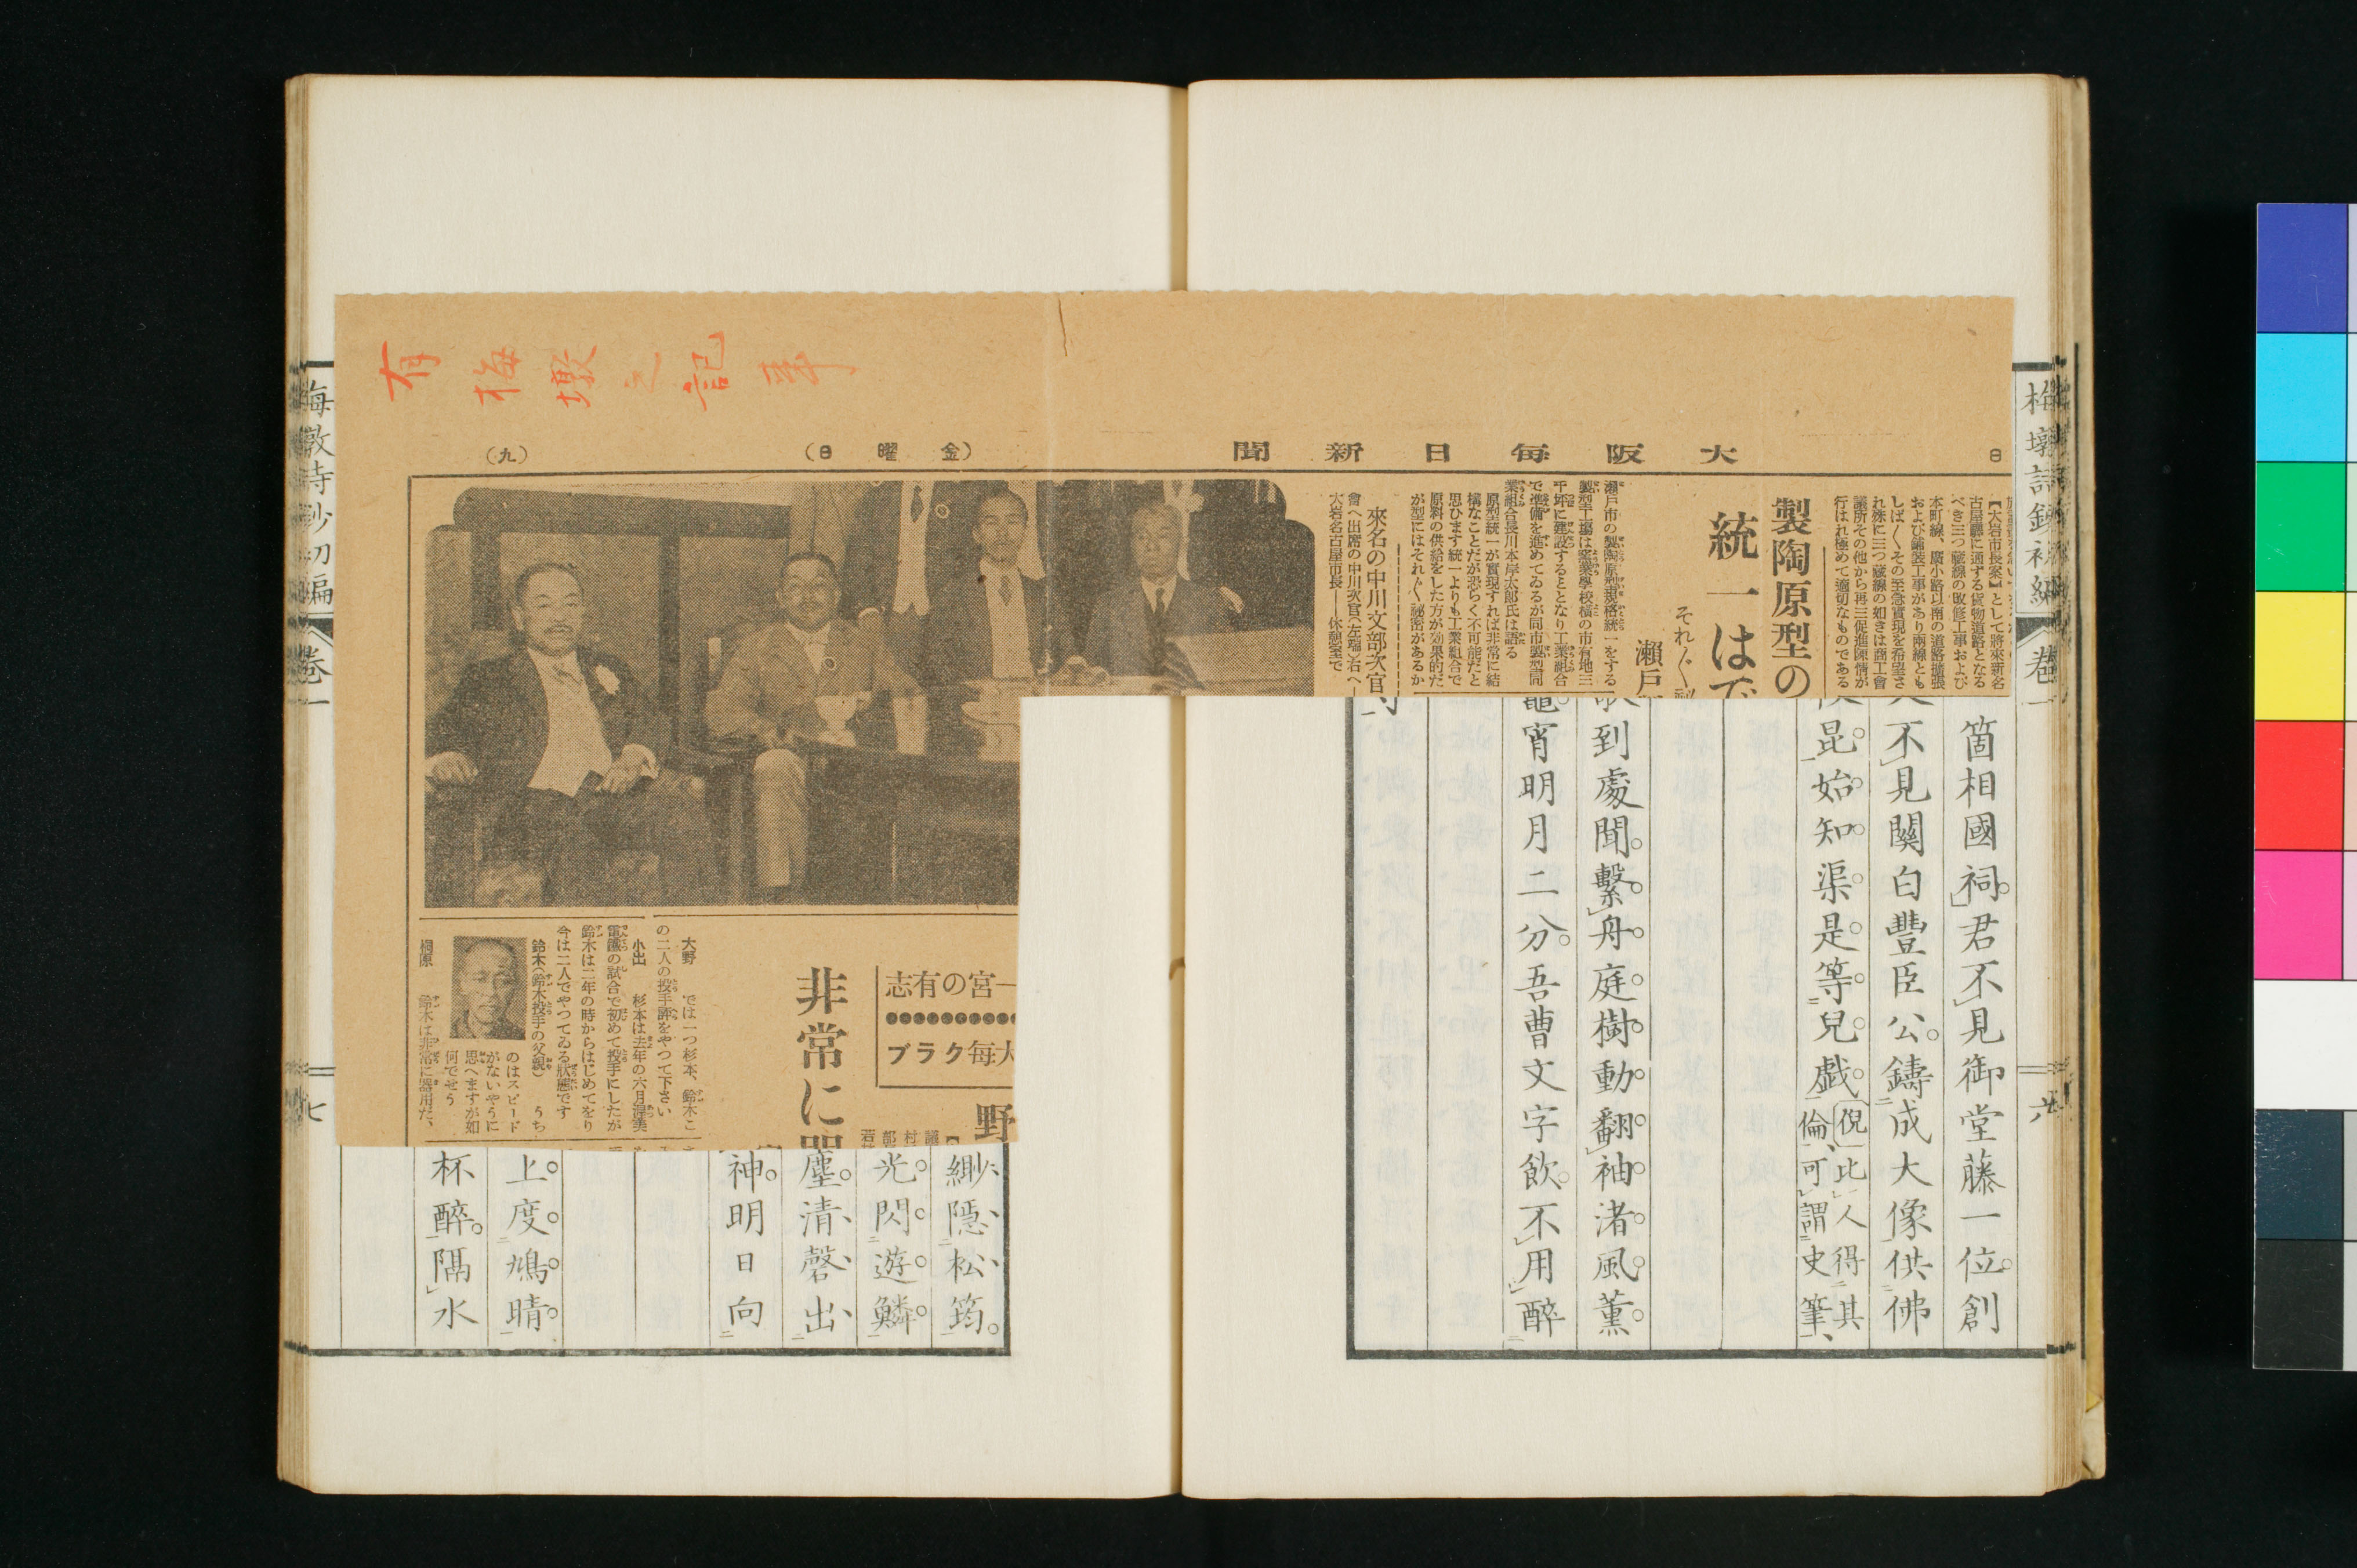 有梅墩之記事
大阪毎日新聞
(金曜日)
(九)
日
【大岩市長案】として將來新名
古屋驛に通ずる貨物道路となる
べき三つ藏線の改修工事および
本町線、廣小路以南の道路擴張
および鋪裝工事があり兩線とも
しば〱その至急實現を希望さ
れ殊に三つ藏線の如きは商工會
議所その他から再三促進陳情が
行はれ極めて適切なものである
製陶原型の
統一はで
それ〲
瀬戸
瀬戸市の製陶原型規格統一をする
製型工場は窯業學校橫の市有地三
千坪に建設することとなり工業組合
で準備を進めてゐるが同市製型同
業組合長川本岸太郎氏は語る
原型統一が實現すれば非常に結
構なことだが恐らく不可能だと
思ひます統一よりも工業組合で
原料の供給をした方が効果的だ
が型にはそれ〲祕密があるか
來名の中川文部次官
會へ出席の中川次官(左端)右へ—
大岩名古屋市長——休憩室で
一宮の有志
大毎クラブ
野
非常に
大野 では一つ杉本、鈴木こ
の二人の投手評をやつて下さい
小出 杉本は去年の六月渥美
電鐵の試合で初めて投手にしたが
鈴木は二年の時からはじめてをり
今は二人でやつてゐる狀態です
鈴木(鈴木投手の父親) うち
のはスピード
がないやうに
思へますが如
何でせう
桐原 鈴木は非常に器用だ、
梅墩詩鈔初編
卷一
六
箇相國祠君不見御堂藤一位創
不見關白豐臣公鑄成大像供佛
昆始知渠是等兒戲
倪比人得其
倫可謂史筆
到處聞繫舟庭樹動翻袖渚風薰
宵明月二分吾曹文字飲不用醉
緲隱松筠
光閃遊鱗
塵清磬出
神明日向
上度鳩晴
杯醉隔水
梅墩詩鈔初編
卷一
七